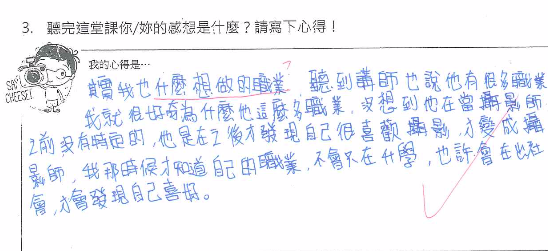 3. 聽完這堂課你/妳的感想是什麼？請寫下心得！
我的心得是…
SAY CHEESE!
其實我也什麼想做的職業，聽到講師也說他有很多職業
我就很好奇為什麼他這麼多職業，沒想到他在當攝影師
之前沒有特定的，他是在之後才發現自己很喜歡攝影，才變成攝
影師，我那時候才知道自己的職業，不會不在升學，也許會在出社
會，才會發現自己喜好。